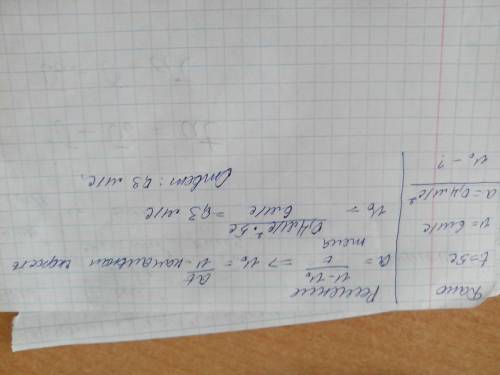 Дано
t=5c
v=6м/с
a=0,4м/с²
v₀-?
Решение
a = v-v₀/t => v₀ = at/v - начальная скорость
тела
v₀ = 0,4м/с²·5с/6м/с = 0,3 м/с
Ответ: 0,3 м/с.